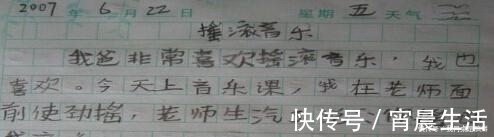 2007年6月22日 星期五 天气
摇滚音乐
我爸非常喜欢摇滚音乐，我也
喜欢。今天上音乐课，我在老师面
前使劲摇，老师生汽
快传号/宵晨生活